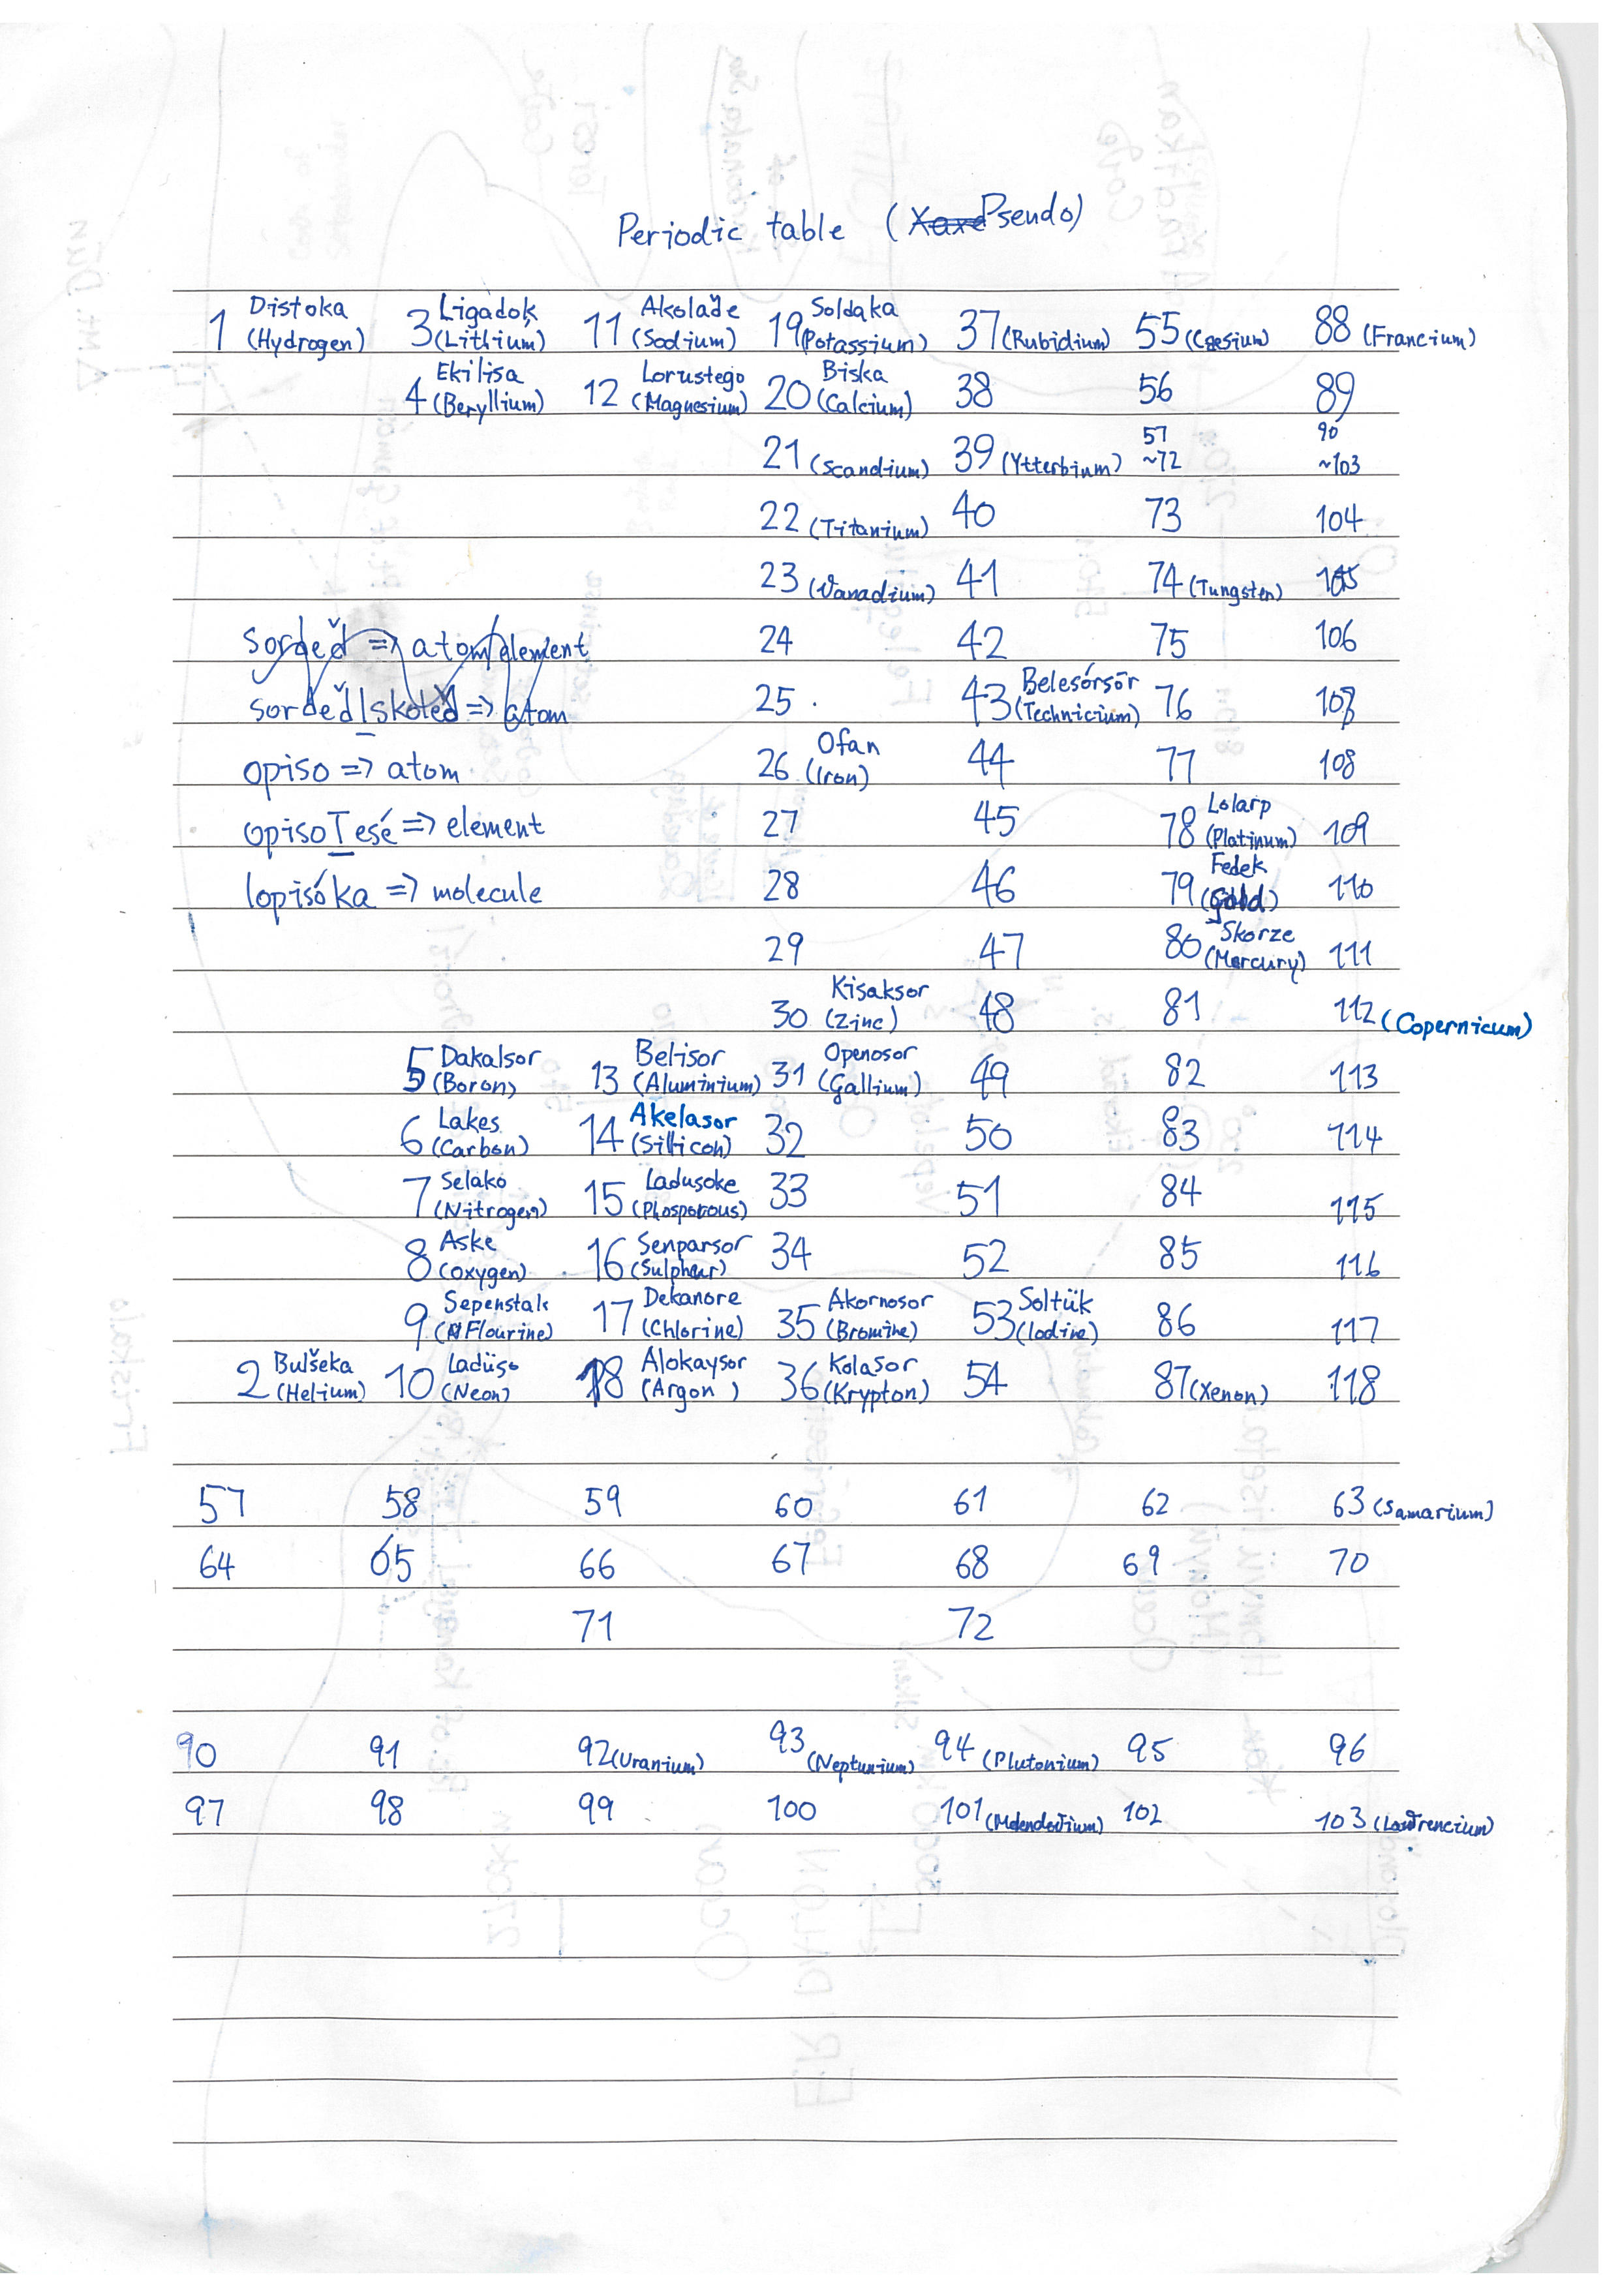 Periodic table (Xaxe Psendo)
Distoka Ligadok Akolaďe Soldaka
1 (Hydrogen) 3 (Lithium) 11 (Sodium) 19 (Potassium) 37 (Rubidium) 55 (Caesium) 88 (Francium)
Ekilisa Lorustego Biska
4 (Beryllium) 12 (Magnesium) 20 (Calcium) 38 56 89
57 90
21 (Scandium) 39 (Ytterbium) ~72 ~103
22 (Titanium) 40 73 104
23 (Vanadium) 41 74 (Tungsten) 105
sorďeď => atom/element 24 42 75 106
Belesórsōr
sorďeď|skoleď => atom 25 43 (Technicium) 76 107
Ofan
opiso => atom 26 (Iron) 44 77 108
Lolarp
opisoTesé => element 27 45 78 (Platinum) 109
Fedek
lopisóka => molecule 28 46 79 (Gold) 110
Skorze
29 47 80 (Mercury) 111
Kisaksor
30 (Zinc) 48 81 112 (Copernicum)
Dakalsor Belisor Openosor
5 (Boron) 13 (Aluminium) 31 (Gallium) 49 82 113
Lakes Akelasor
6 (Carbon) 14 (Sillicon) 32 50 83 114
Selako Ladusoke
7 (Nitrogen) 15 (Phosporous) 33 51 84 115
Aske Senparsor
8 (Oxygen) 16 (Sulphur) 34 52 85 116
Sepenstak Dekanore Akornosor Soltük
9 (Flourine) 17 (Chlorine) 35 (Bromine) 53 (Iodine) 86 117
Bulšeka Ladüso Alokaysor Kolasor
2 (Helium) 10 (Neon) 18 (Argon) 36 (Krypton) 54 87 (Xenon) 118
57 58 59 60 61 62 63 (Samarium)
64 65 66 67 68 69 70
71 72
90 91 92 (Uranium) 93 (Neptunium) 94 (Plutonium) 95 96
97 98 99 100 101 (Mdendevium) 102 103 (Lawrencium)